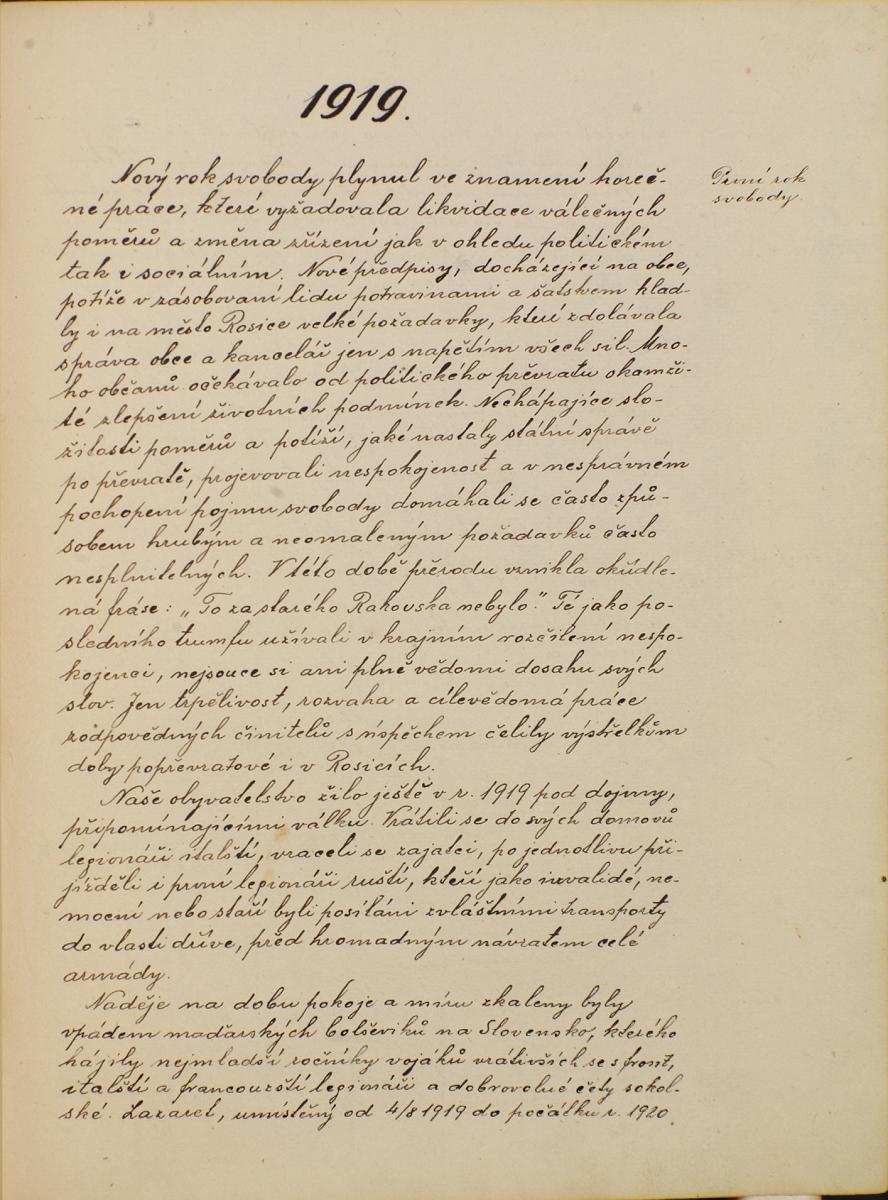 1919.
Nový rok svobody plynul ve znamení horeč-
né práce, které vyžadovala likvidace válečných
poměrů a změna zřízení jak v ohledu politickém
tak i sociálním. Nové předpisy, docházející na obce,
potíže v zásobovaní lidu potravinami a šatstvem klad-
ly i na město Rosice velké požadavky, které zdolávala
správa obce a kancelář jen s napětím všech sil. Mno-
ho občanů očekávalo od politického převratu okamži-
té zlepšení životních podmínek. Nechápajíce slo-
žitosti poměrů a potíží, jaké nastaly státní správě
po převratě, projevovali nespokojenost a v nesprávném
pochopení pojmu svobody domáhali se často způ-
sobem hrubým a neomaleným požadavků často
nesplnitelných. V této době přerodu vznikla okřídle-
ná fráse: „To za starého Rakouska nebylo." Té jako po-
sledního trumfu užívali v krajním rozčilení nespo-
kojenci, nejsouce si ani plně vědomi dosahu svých
slov. Jen trpělivost, rozvaha a cílevědomá práce
zodpovědných činitelů s úspěchem čelily výstřelkům
doby popřevratové i v Rosicích.
Naše obyvatelstvo žilo ještě v r. 1919 pod dojmy,
připomínajícími válku. Vrátili se do svých domovů
legionáři italští, vraceli se zajatci, po jednotlivu při-
jížděli i první legionáři ruští, kteří jako invalidé, ne-
mocní nebo staří byli posíláni zvláštními transporty
do vlasti dříve, před hromadným návratem celé
armády.
Naděje na dobu pokoje a míru zkaleny byly
vpádem maďarských bolševiků na Slovensko, kterého
hájily nejmladší ročníky vojáků vrátivších se s front,
italští a francouzští legionáři a dobrovolné čety sokol-
ské. Lazaret, umístěný od 4/8 1919 do počátku r. 1920
První rok
svobody.